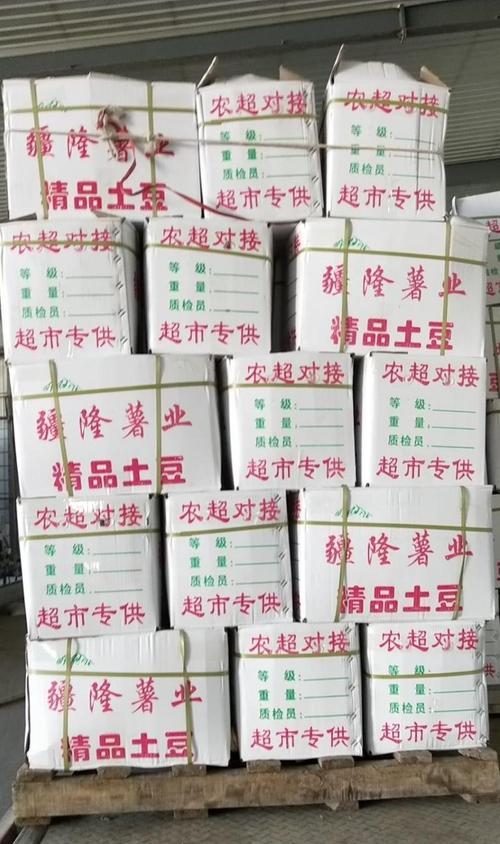 疆隆薯业
精品土豆
农超对接
等级:
重量:
质检员
超市专供
农超对接
等级:
重量:
质检员
超市专供
农超对接
等级:
重量:
质检员:
超市专供
农超对接
等级:
重量:
质检员:
超市专供
疆隆薯业
精品土豆
疆隆薯业
精品土豆
农超对接
等级:
重量:
质检员:
超市专供
农超对接
等级:
重量:
质检员:
超市专供
农超对接
等级:
重量:
质检员:
超市专供
农超对接
等级:
重量:
质检员:
超市专供
疆隆薯业
精品土豆
疆隆薯业
精品土豆
农超对接
等级:
重量:
质检员:
超市专供
农超对接
等级:
重量:
质检员:
超市专供